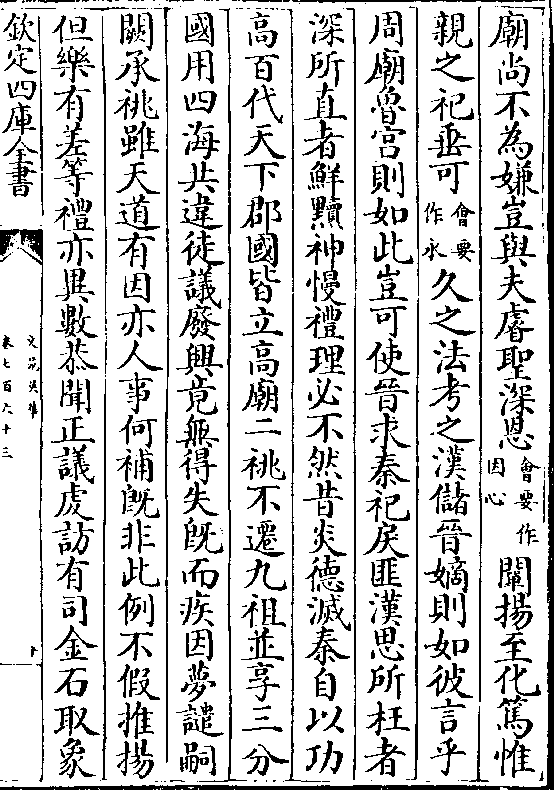 廟尚不為嫌豈與夫睿聖深恩會要作因心闡揚至化篤惟
親之祀垂可會要作永久之法考之漢儲晉嫡則如彼言乎
周廟魯宮則如此豈可使晉求秦祀戾匪漢思所枉者
深所直者鮮黷神慢禮理必不然昔炎德滅秦自以功
高百代天下郡國皆立高廟二祧不遷九祖並享三分
國用四海共違徒議廢興竟無得失既而疾因夢譴嗣
闕承祧雖天道有因亦人事何補既非此例不假推揚
但樂有差等禮亦異數恭聞正議虔訪有司金石取象
欽定四庫全書
文苑英華
卷七百六十三